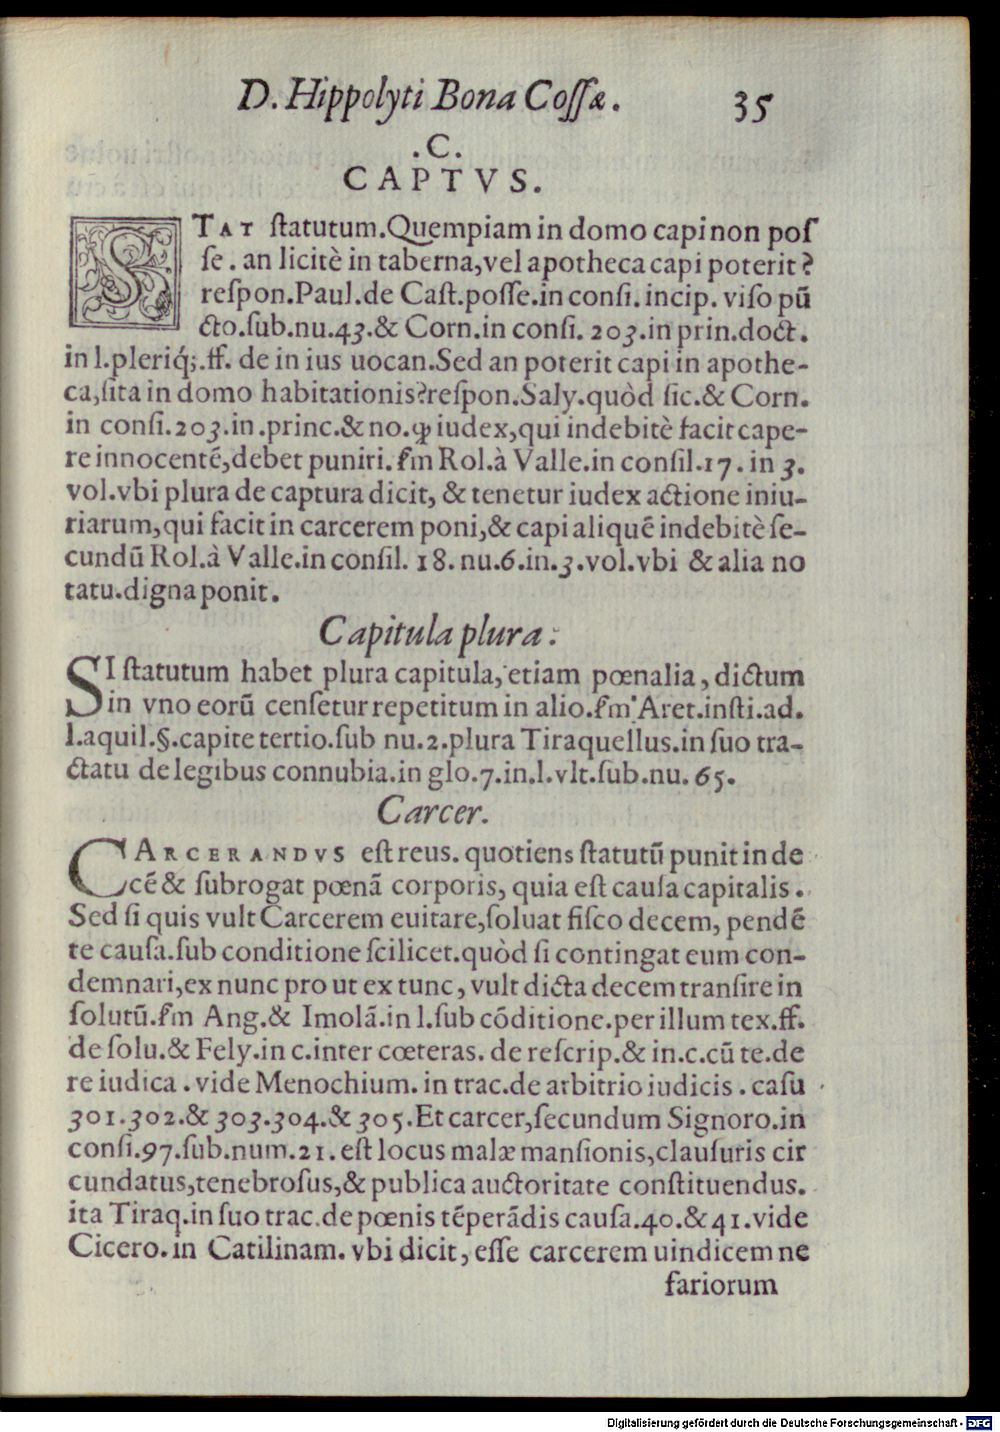 D. Hippolyti Bona Coſſæ. 35
.C.
CAPTVS.
STAT ſtatutum.Quempiam in domo capi non poſ
ſe. an licitè in taberna,vel apotheca capi poterit?
reſpon.Paul.de Caſt.poſſe.in conſi. incip. viſo pū
cto.ſub.nu.43.& Corn.in conſi. 203.in prin.doct.
in l.pleriq́;.ff. de in ius uocan.Sed an poterit capi in apothe-
ca,ſita in domo habitationis?reſpon.Saly.quòd ſic.& Corn.
in conſi.203.in.princ.& no.ꝙ iudex,qui indebitè facit cape-
re innocentē,debet puniri. ſm Rol.à Valle.in conſil.17. in 3.
vol.vbi plura de captura dicit, & tenetur iudex actione iniu-
riarum,qui facit in carcerem poni,& capi aliquē indebitè ſe-
cundū Rol.à Valle.in conſil. 18. nu.6.in.3.vol.vbi & alia no
tatu.digna ponit.
Capitula plura.
SI ſtatutum habet plura capitula, etiam pœnalia, dictum
in vno eorū cenſetur repetitum in alio.ſm Aret.inſti.ad.
l.aquil.§.capite tertio.ſub nu.2.plura Tiraquellus.in ſuo tra-
ctatu de legibus connubia.in glo.7.in.l.vlt.ſub.nu. 65.
Carcer.
CARCERANDVS eſt reus. quotiens ſtatutū punit in de
cē & ſubrogat pœnā corporis, quia eſt cauſa capitalis.
Sed ſi quis vult Carcerem euitare,ſoluat fiſco decem, pendē
te cauſa.ſub conditione ſcilicet.quòd ſi contingat eum con-
demnari,ex nunc pro ut ex tunc, vult dicta decem tranſire in
ſolutū.ſm Ang.& Imolā.in l.ſub cōditione.per illum tex.ff.
de ſolu.& Fely.in c.inter cœteras. de reſcrip.& in.c.cū te.de
re iudica. vide Menochium. in trac.de arbitrio iudicis. caſu
301.302.& 303.304.& 305.Et carcer,ſecundum Signoro.in
conſi.97.ſub.num.21. eſt locus malæ manſionis,clauſuris cir
cundatus,tenebroſus,& publica auctoritate conſtituendus.
ita Tiraq.in ſuo trac.de pœnis tēperādis cauſa.40.& 41.vide
Cicero.in Catilinam. vbi dicit, eſſe carcerem uindicem ne
fariorum
Digitalisierung gefördert durch die Deutsche Forschungsgemeinschaft - DFG